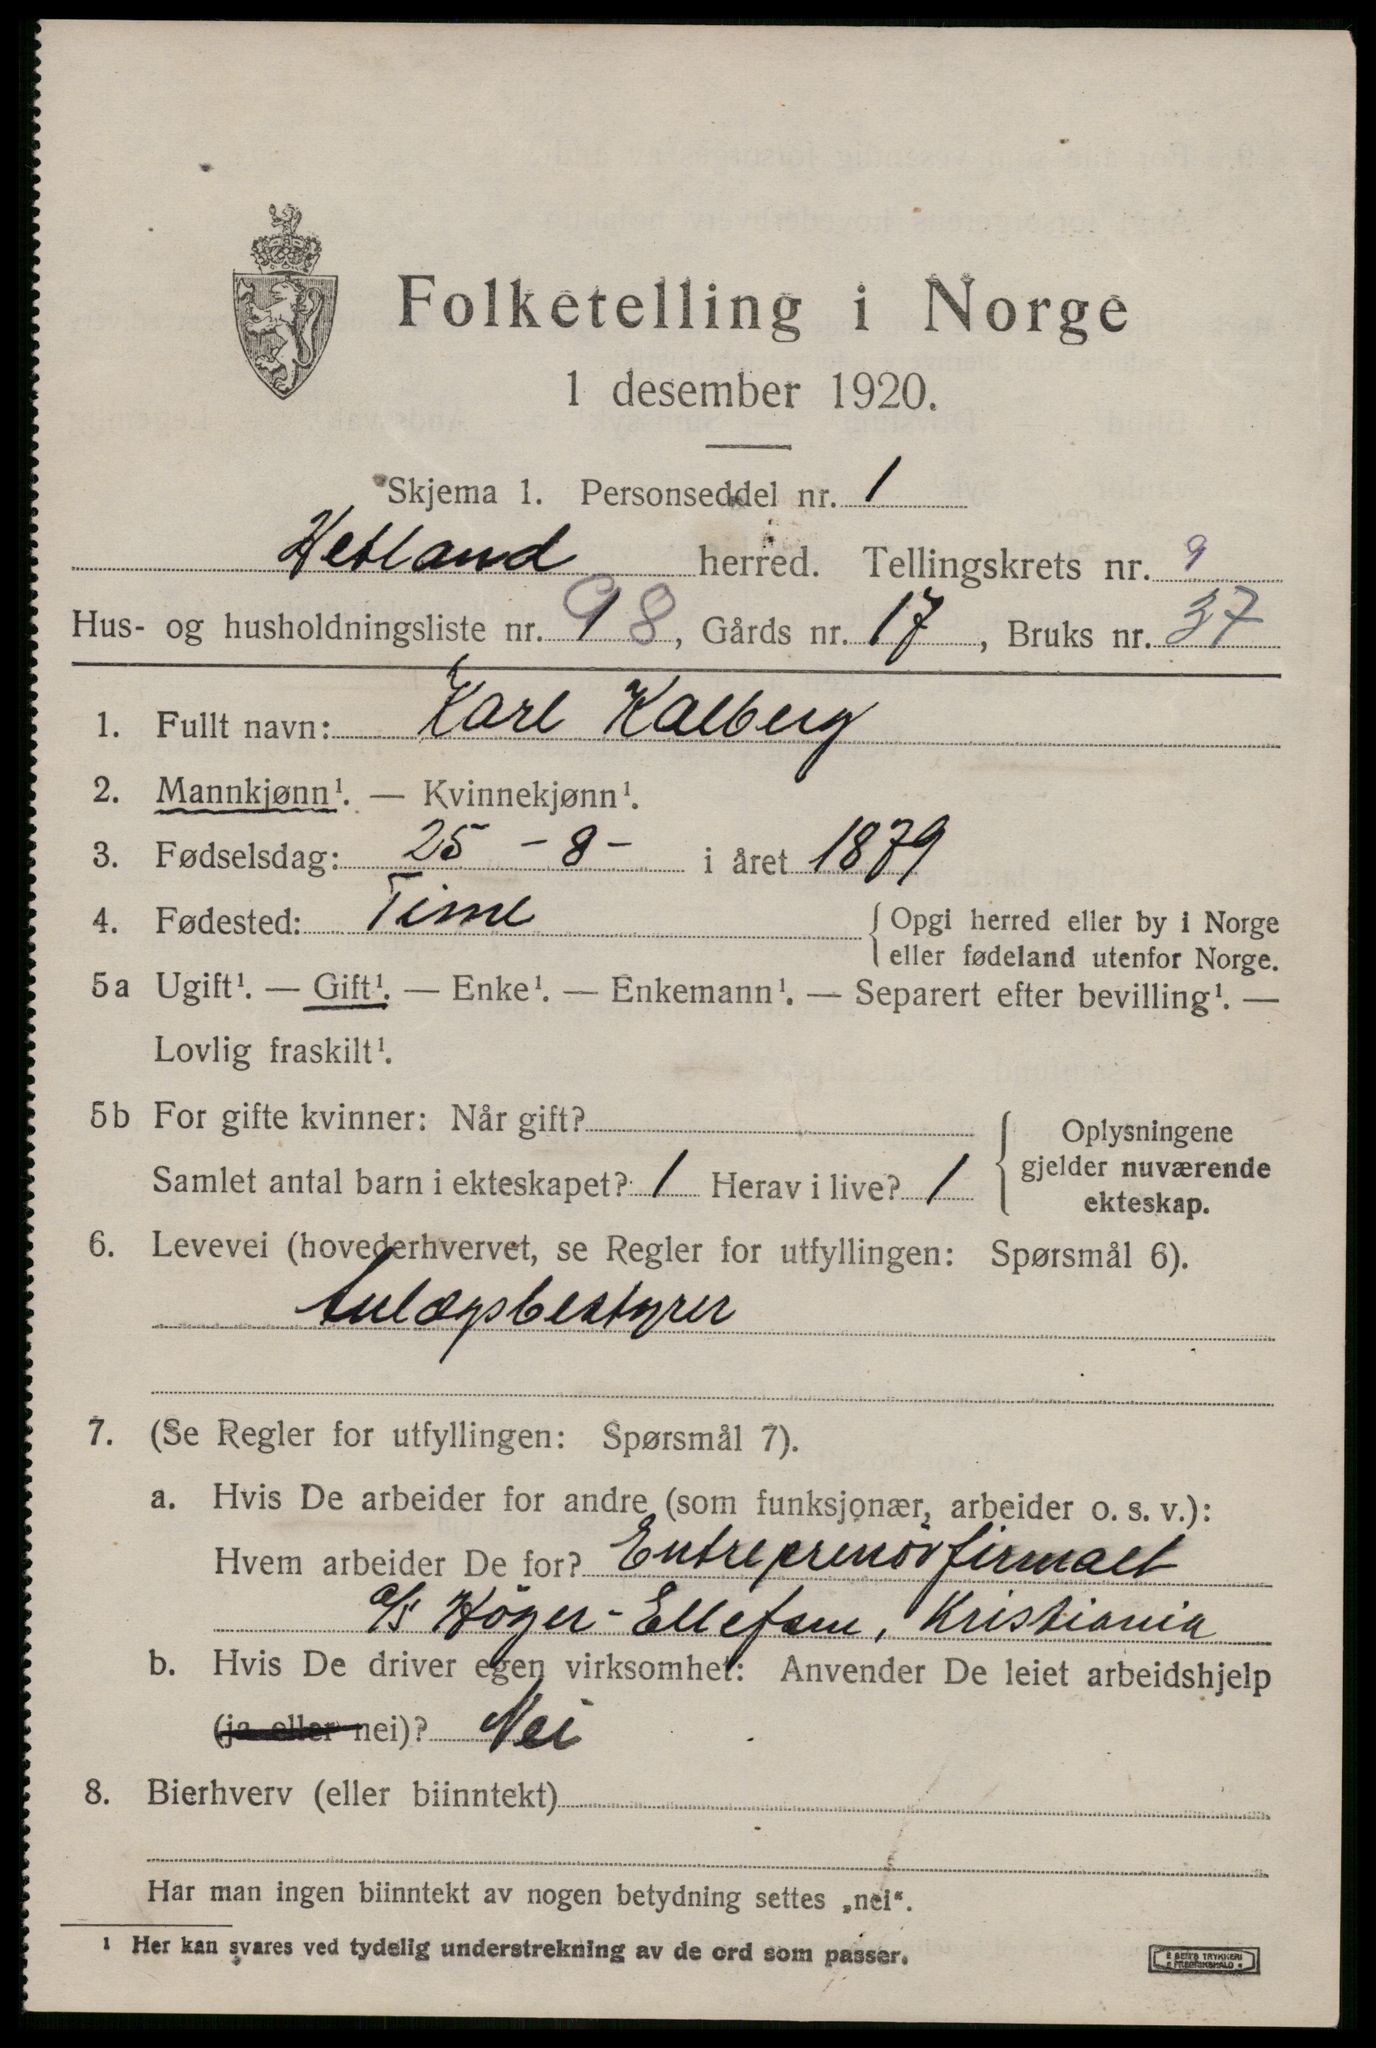 Folketelling i Norge
1 desember 1920.
Skjema 1. Personseddel nr. 1
Hetland herred. Tellingskrets nr. 9
Hus- og husholdningsliste nr. 98, Gårds nr. 17, Bruks nr. 37
1. Fullt navn: Karl Kalberg
2. Mannkjønn¹. — Kvinnekjønn¹.
3. Fødselsdag: 25 - 8 - i året 1879
4. Fødested: Time { Opgi herred eller by i Norge
eller fødeland utenfor Norge.
5a Ugift¹. — Gift¹. — Enke¹. — Enkemann¹. — Separert efter bevilling¹. —
Lovlig fraskilt¹.
5b For gifte kvinner: Når gift?
Samlet antal barn i ekteskapet? 1 Herav i live? 1
Oplysningene
gjelder nuværende
ekteskap.
6. Levevei (hovederhvervet, se Regler for utfyllingen: Spørsmål 6).
Anlægsbestyrer
7. (Se Regler for utfyllingen: Spørsmål 7).
a. Hvis De arbeider for andre (som funksjonær, arbeider o. s. v.):
Hvem arbeider De for? Entreprenörfirmaet
a/s Höyer-Ellefsen, Kristiania
b. Hvis De driver egen virksomhet: Anvender De leiet arbeidshjelp
(ja eller nei)? Nei
8. Bierhverv (eller biinntekt)
Har man ingen biinntekt av nogen betydning settes „nei".
¹ Her kan svares ved tydelig understrekning av de ord som passer.